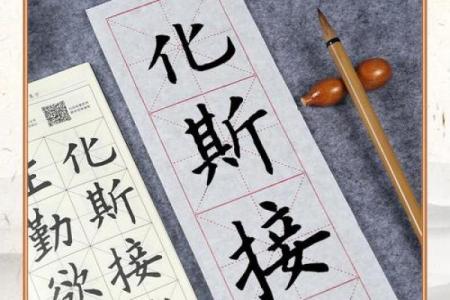 化斯接
化斯接
勤欲